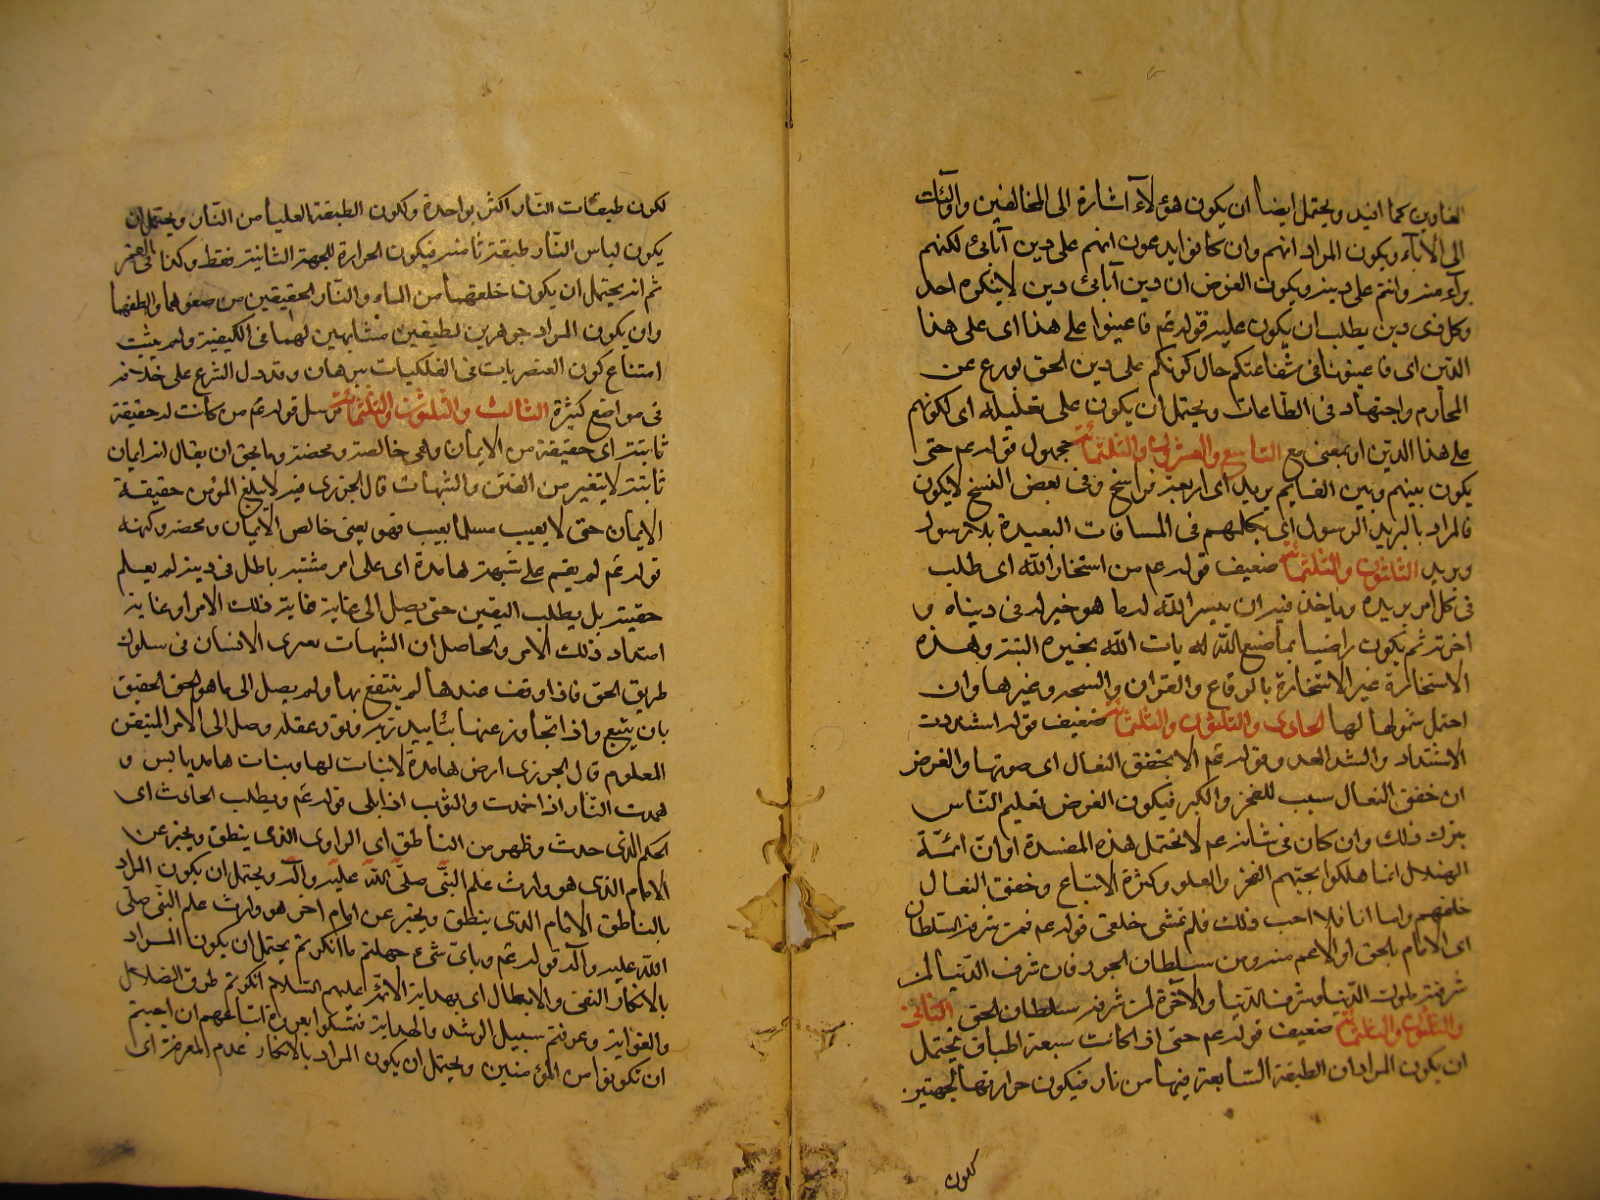 العناوين كما افيد ويحتمل ايضا ان يكون هؤلاء اشارة الى المخالفين واولئك
الى الآباء ويكون المراد انهم وان كانوا يدعون انهم على دين آبائي لكنهم
برآء منه وانتم على دينه ويكون الغرض ان دين آبائي دين لا ينكره احد
وكل ذى دين يطلب ان يكون عليه قوله عم فاعينوا على هذا اى على هذا
الدين اى فاعينونا فى شفاعتكم حال كونكم على دين الحق بورع عن
المحارم واجتهاد فى الطاعات ويحتمل ان يكون على تعليلية اى لكونهم
على هذا الدين او بمعنى مع التاسع والعشرون والثلثمائة مجهول قوله عم حتى
يكون بينهم وبين القايم بريد اى اربعة فراسخ وفى بعض النسخ لا يكون
فالمراد بالبريد الرسول اى يكلمهم فى المسافات البعيدة بلا رسول
وبريد الثلثون والثلثمائة ضعيف قوله عم من استخار الله اى طلب
فى كل امر يريده وياخذ فيه ان ييسر الله له ما هو خير له فى دنياه و
اخرته ثم يكون راضيا بما صنع الله له يات الله بخيره البتة وهذه
الاستخارة غير الاستخارة بالرقاع والقران والسبحة وغيرها وان
احتمل شمولها لها الحادى والثلثون والثلثمائة ضعيف قوله اشتددت
الاشتداد والشد العدو وقوله عم الا بخفق النعال اى صوتها والغرض
ان خفق النعال سبب للفخر والكبر فيكون الغرض تعليم الناس
بترك ذلك وان كان فى شانه عم لا يحتمل هذه المفسدة او ان ائمة
الضلال انما هلكوا بحبهم الفخر والعلو وكثرة الاتباع وخفق النعال
خلفهم واما انا فلا احب ذلك فلم تمشى خلفى قوله عم فمن شرفه السلطان
اى الامام بالحق او الاعم منه ومن سلطان الجور فان شرف الدنيا لمن
شرفته ملوك الدنيا وشرف الدنيا والآخرة لمن شرفه سلطان الحق الثانى
والثلثون والثلثمائة ضعيف قوله عم حتى اذا كانت سبعة اطباق يحتمل
ان يكون المراد ان الطبقة السابعة فيها من نار فيكون حرارتها لجهتين
لكون
لكون طبقات النار اكثر بواحدة ولكون الطبقة العليا من النار ويحتمل ان
يكون لباس النار طبقة ثامنة فيكون الحرارة للجهة الثانية فقط وكذا فى القمر
ثم انه يحتمل ان يكون خلقهما من الماء والنار الحقيقين من صفوهما والطفهما
وان يكون المراد جوهرين لطيفين مشابهين لهما فى الكيفية ولم يثبت
امتناع كون العنصريات فى الفلكيات ببرهان وقد دل الشرع على خلافه
فى مواضع كثيرة الثالث والثلثون والثلثمائة مرسل قوله عم من كانت له حقيقة
ثابتة اى حقيقة من الايمان وهى خالصة ومحضة وما يحق ان يقال انه ايمان
ثابتة لا يتغير من الفتن والشبهات قال الجزرى فيه لا يبلغ المؤمن حقيقة
الايمان حتى لا يعيب مسلما بعيب هو فيه يعنى خالص الايمان ومحضه وكنهه
قوله عم لم يقم على شبهة هامدة اى على امر مشتبه باطل فى دينه لم يعلم
حقيته بل يطلب اليقين حتى يصل الى غاية ذلك الامر او غاية
امتداد ذلك الامر والحاصل ان الشبهات تعرى الانسان فى سلوك
طريق الحق فاذا وقف عندها لم ينتفع بها ولم يصل الى ما هو الحق الحقيق
بان يتبع واذا تجاوز عنها بتاييد ربه وقوة عقله وصل الى الامر المتيقن
المعلوم قال الجزرى ارض هامدة لا نبات لها ونبات هامد يابس و
همدت النار اذا خمدت والثوب اذا بلى قوله عم ويطلب الحادث اى
الحكم الذى حدث وظهر من الناطق اى الراوى الذى ينطق ويخبر عن
الامام الذى هو وارث علم النبى صلى الله عليه وآله ويحتمل ان يكون المراد
بالناطق الامام الذى ينطق ويخبر عن امام اخر هو وارث علم النبى صلى
الله عليه وآله قوله عم وباى شىء جهلتم ما انكرتم يحتمل ان يكون المراد
بالانكار النفى والابطال اى بهداية الائمة عليهم السلام انكرتم طرق الضلال
والغواية وعرفتم سبيل الرشد والهداية فتمسكوا بعروة اتباعهم ان احببتم
ان تكونوا من المؤمنين ويحتمل ان يكون المراد بالانكار عدم المعرفة اى